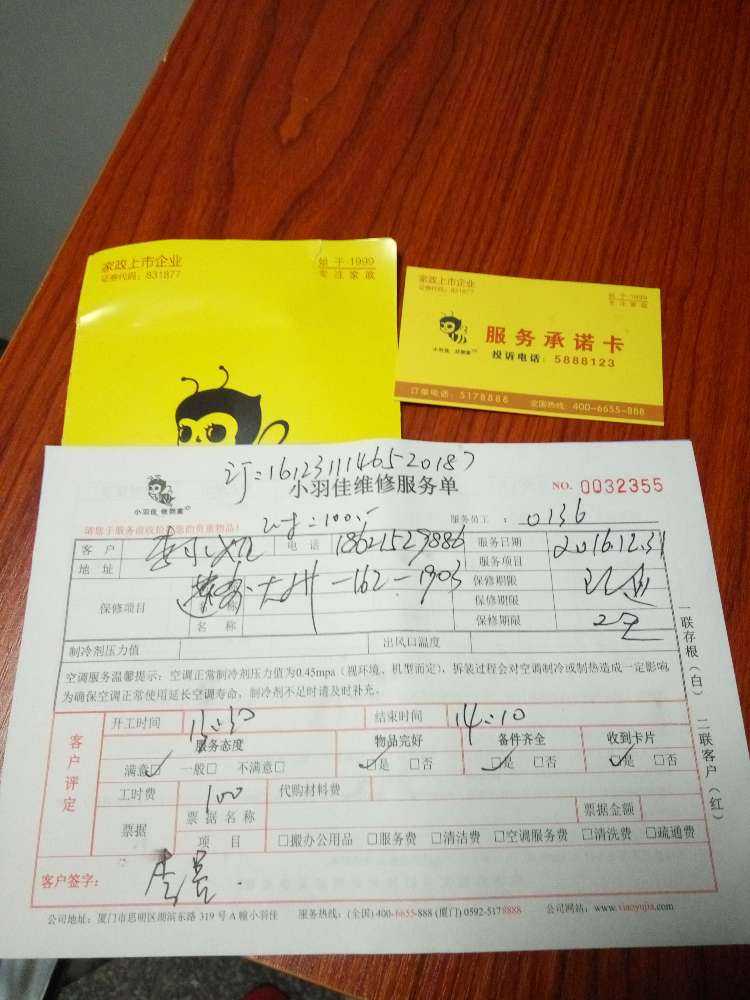 家政上市企业
证券代码：831877
始于·1999
专注家政
家政上市企业
证券代码：831877
始于·1999
专注家政
服务承诺卡
投诉电话：5888123
小羽佳 好管家
订单电话：5178888
全国热线：400-6655-888
订=161231114652018
小羽佳维修服务单
小羽佳 好管家
NO. 0032355
=100.-
服务员工：0136
客户
电话
服务日期 2016.12.31
地址
服务项目
保修项目
名称
保修期限
保修期限
名称
保修期限
制冷剂压力值
出风口温度
空调服务温馨提示：空调正常制冷剂压力值为0.45mpa（视环境、机型而定），拆装过程会对空调制冷或制热造成一定影响
为确保空调正常使用延长空调寿命，制冷剂不足时请及时补充。
一联存根（白） 二联客户（红）
客户评定
开工时间 13:30
结束时间 14:10
服务态度
物品完好
备件齐全
收到卡片
满意□ 一般□ 不满意□
□是 □否
□是 □否
□是 □否
工时费 100
代购材料费
票据
票据名称
票据金额
项目
□搬办公用品 □服务费 □清洁费 □空调服务费 □清洗费 □疏通费
客户签字：
公司地址：厦门市思明区湖滨东路 319 号 A 幢小羽佳
服务热线：(全国) 400-6655-888 (厦门) 0592-5178888
公司网站：www.xiaoyujia.com